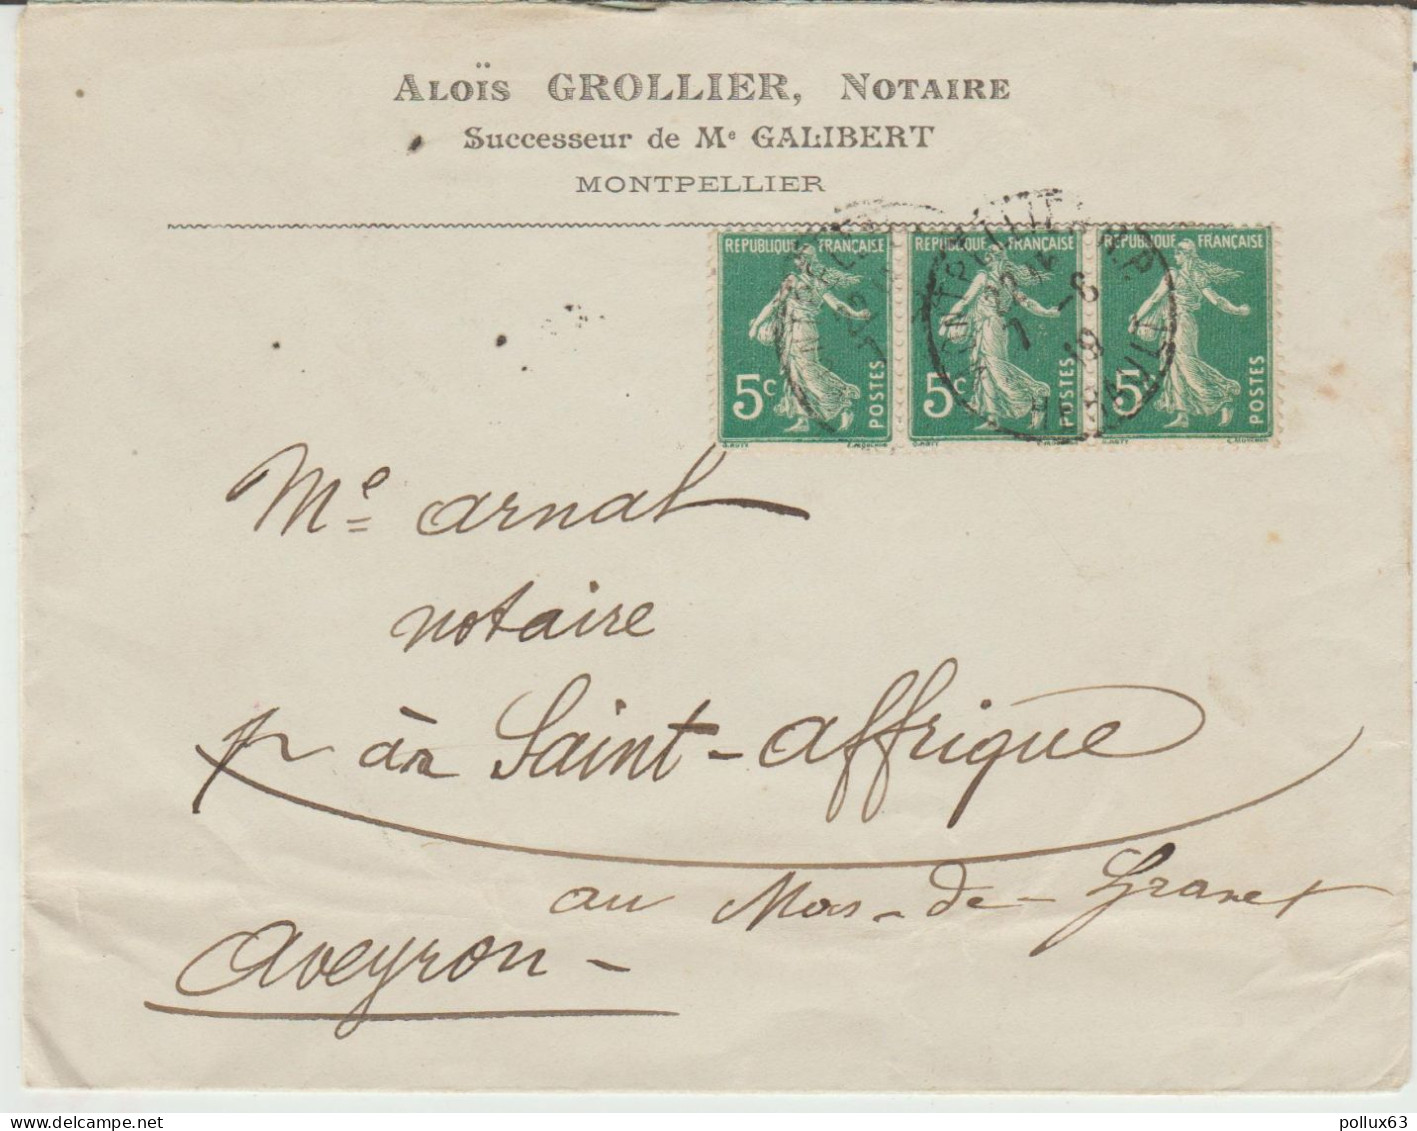 Aloïs GROLLIER, Notaire
Successeur de Me GALIBERT
MONTPELLIER
REPUBLIQUE FRANÇAISE REPUBLIQUE FRANÇAISE REPUBLIQUE FRANÇAISE
5c POSTES 5c POSTES 5c POSTES
MONTPELLIER R.P.
22
7 -6
19
HERAULT
Me Arnal
notaire
à Saint-Affrique
au Mas-de-Gravet
Aveyron
pollux63